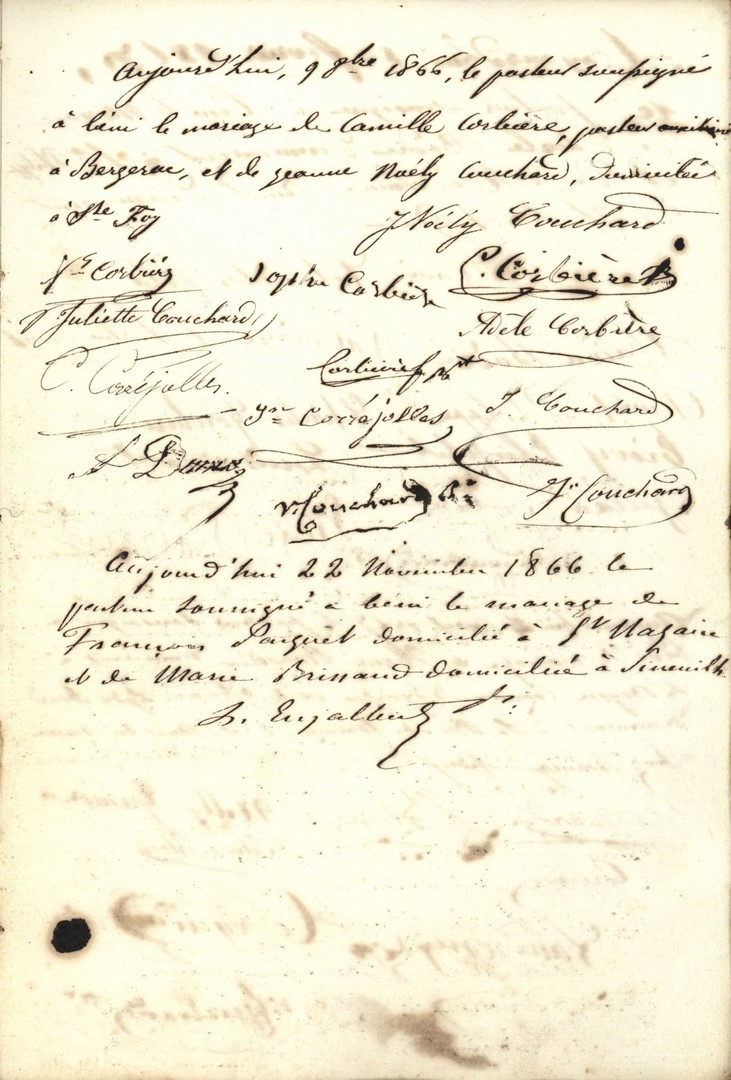 Aujourd'hui, 9 8bre 1866, le pasteur soussigné
à béni le mariage de Camille Corbière, pasteur auxiliaire
à Bergerac, et de Jeanne Noély Couchard, domiciliée
à Ste Foy
J Noély Couchard
Vr Corbière Sophie Corbière C. Corbière
Juliette Couchard Adèle Corbière
C. Corréjolles. Corbière f
Jn Corréjolles J. Couchard
A
V. Couchard Jn Couchard
Aujourd'hui 22 Novembre 1866 le
pasteur soussigné a béni le mariage de
François Parquet domicilié à St Nazaire
et de Marie Brissaud domiciliée à Sineuilh
L. Enjalbert p.